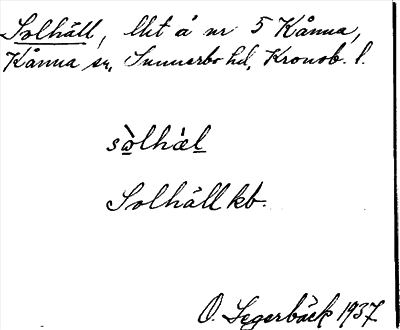 Solhäll, lht å nr 5 Kånna,
Kånna sn, Sunnerbo hd, Kronob. l.
sòlhàl
Solhäll kb.
O. Segerbäck 1937